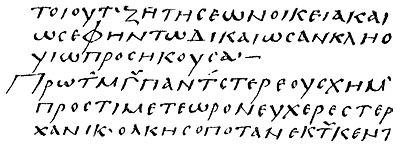 ΤΟΙΟΥΤ·ΖΗΤΗΣΕΩΝΟΙΚΕΙΑΚΑΙ
ΩΣΕΦΗΝΤΩΔΙΚΑΙΩΣΑΝΚΛΗΟ
ΥΙΩΠΡΟΣΗΚΟΥΣΑ·–
ΠΡΩΤ᾿ΜΓ᾿ΠΑΝΤ᾿ΣΤΕΡΕΟΥΣΧΗΜ᾿
ΠΡΟΣΤΙΜΕΤΕΩΡΟΝΕΥΧΕΡΕΣΤΕΡ
ΧΑΝΙΚ·ΟΛΚΗΣΟΠΟΤΑΝΕΚΤ᾿ΚΕΝΤ